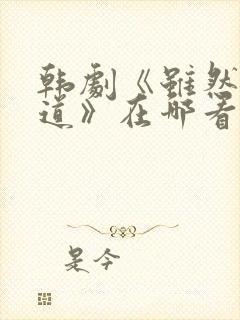 韩劇《虽然
道》在哪看
是今